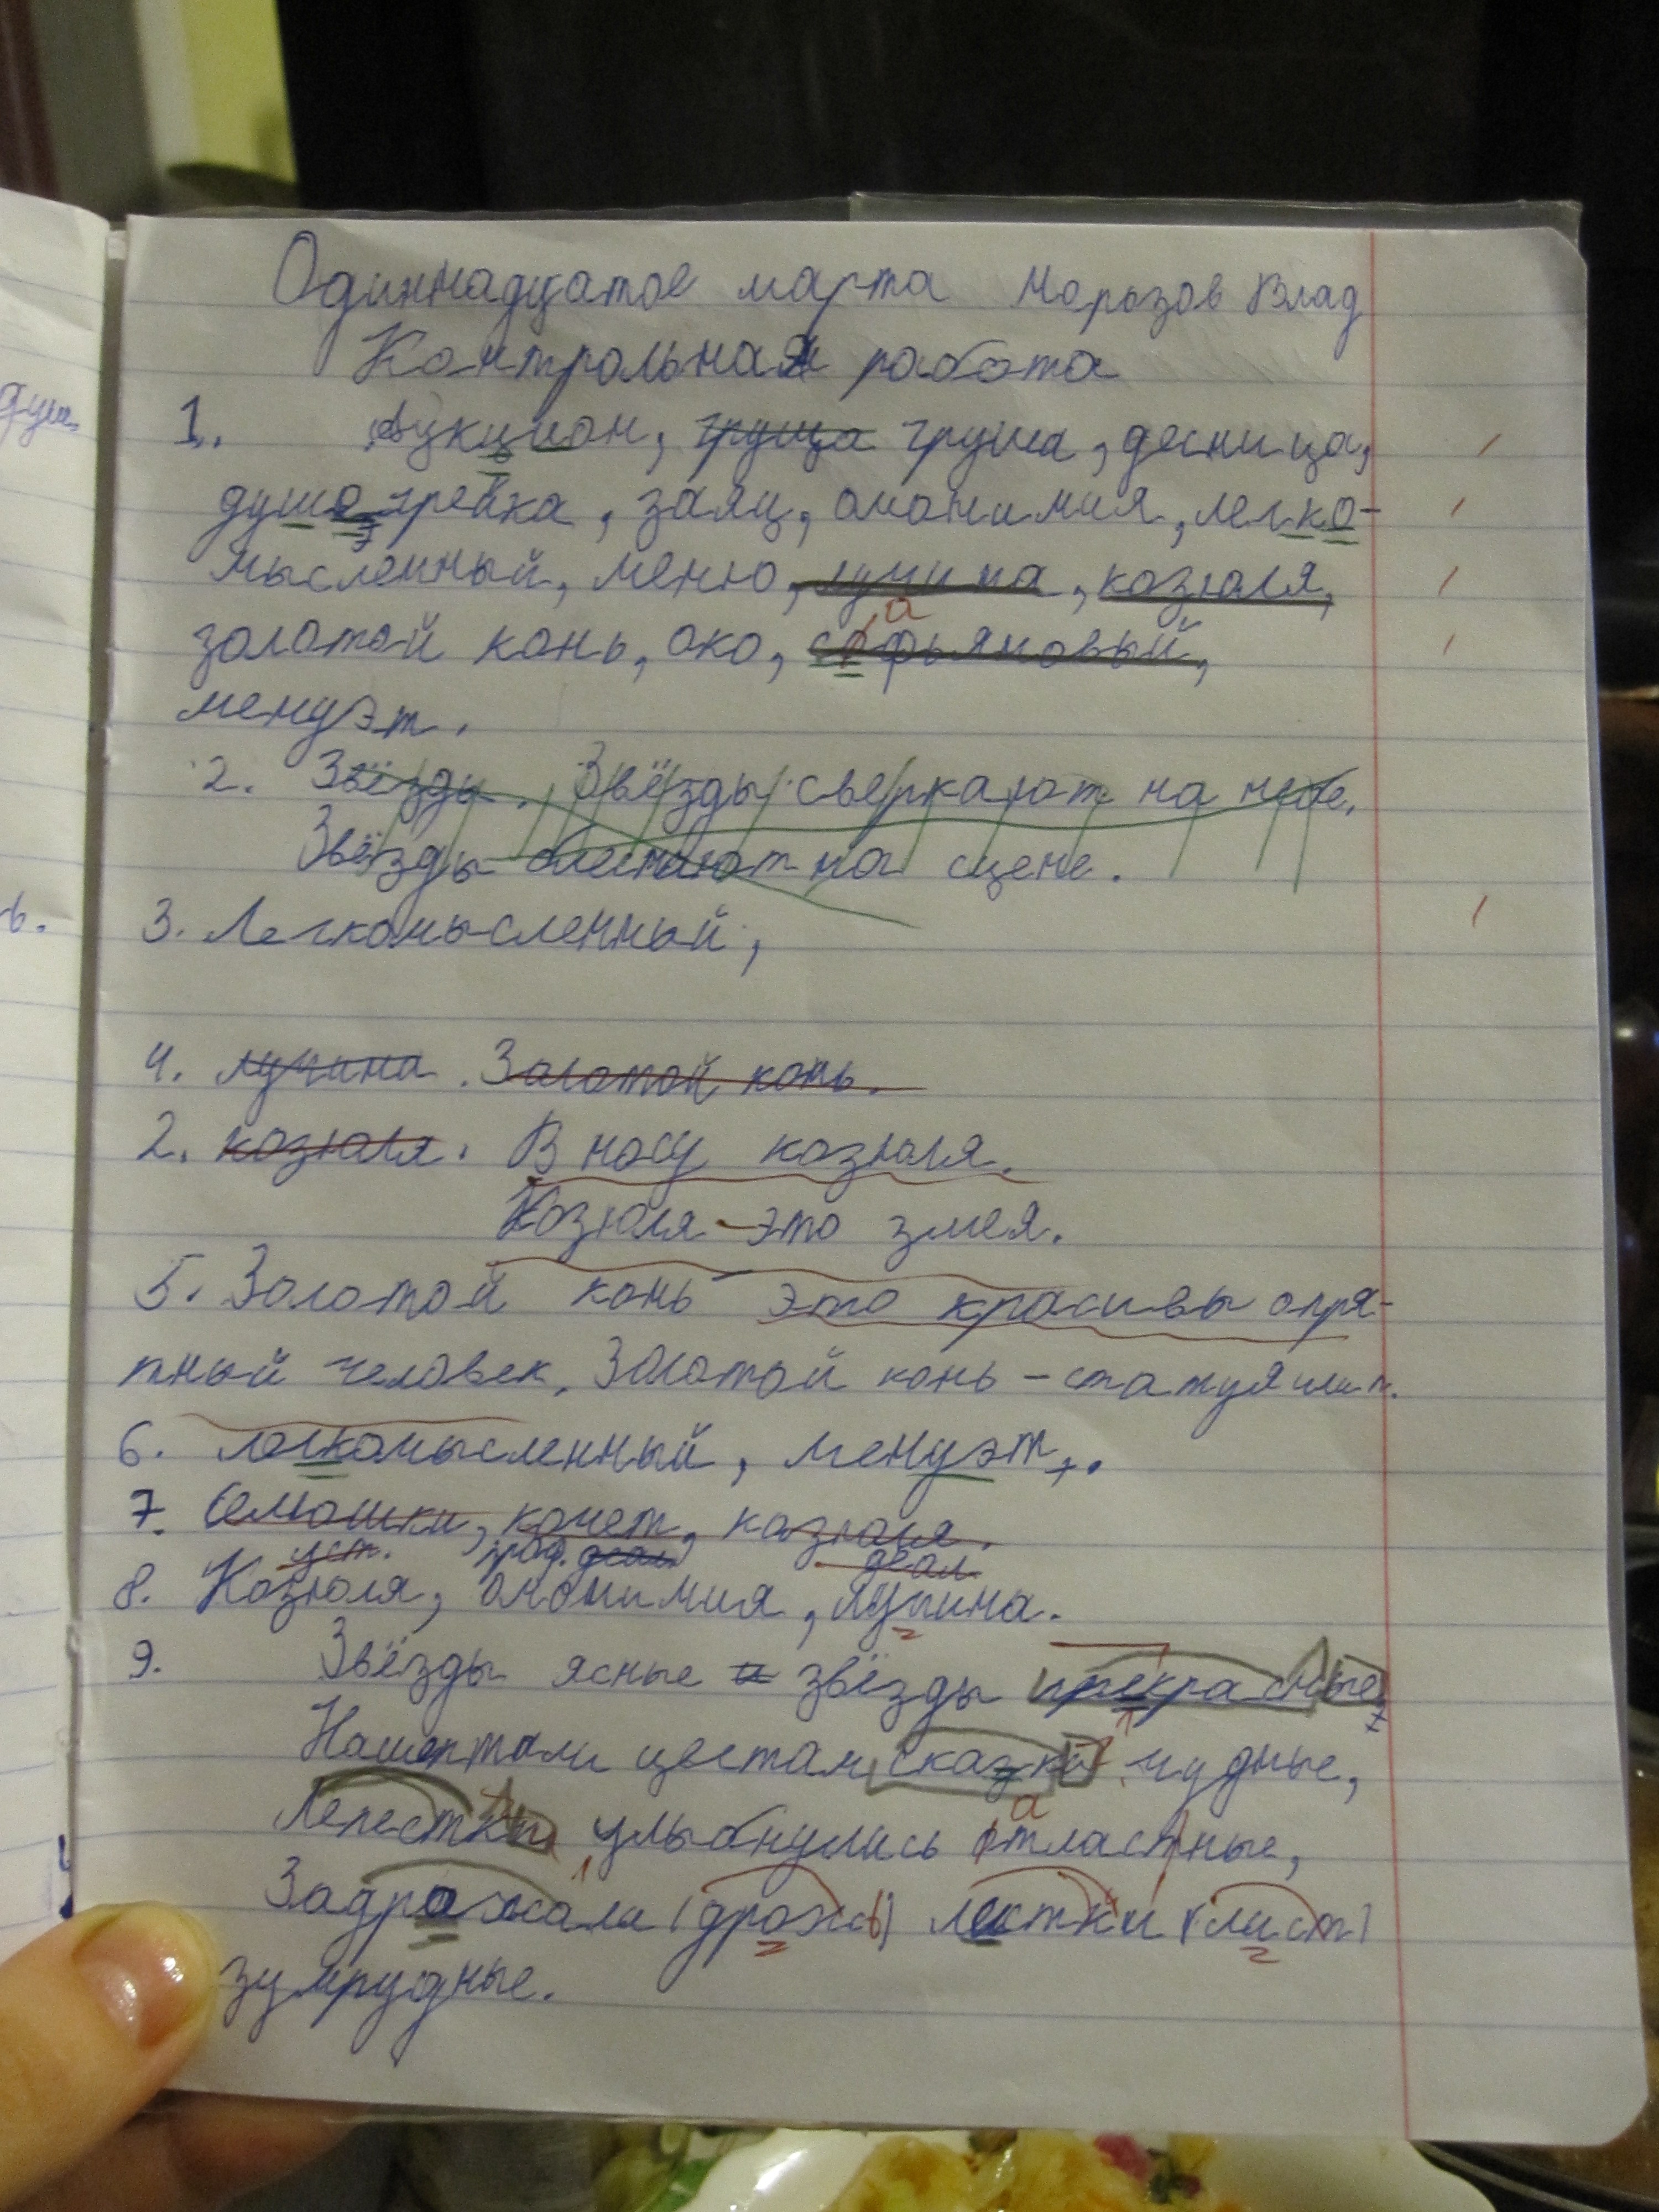 Одиннадцатое марта Морозов Влад
Контрольная работа
1. Аукцион, груща груша, десница,
душегрейка, заяц, омонимия, легко-
мысленный, меню, лучина, козюля,
а
золотой конь, око, софьяновый,
менуэт.
2. Звёзды. Звёзды сверкают на небе.
Звёзды блистают на сцене.
3. Легкомысленный,
4. лучина. Золотой конь.
2. козюля. В носу козюля.
Козюля - это змея.
5. Золотой конь это красивы опря-
тный человек. Золотой конь - статуя
6. легкомысленный, менуэт.
7. Семошки, кочет, козюля.
уст. проф. диал. диал.
8. Козюля, омонимия, лучина.
9. Звёзды ясные и звёзды прекрасные
Нашептали цветам сказки чудные,
а
Лепестки улыбнулись отластные,
Задрожали (дрожь) листки (лист)
зумрудные.
душ
ь.